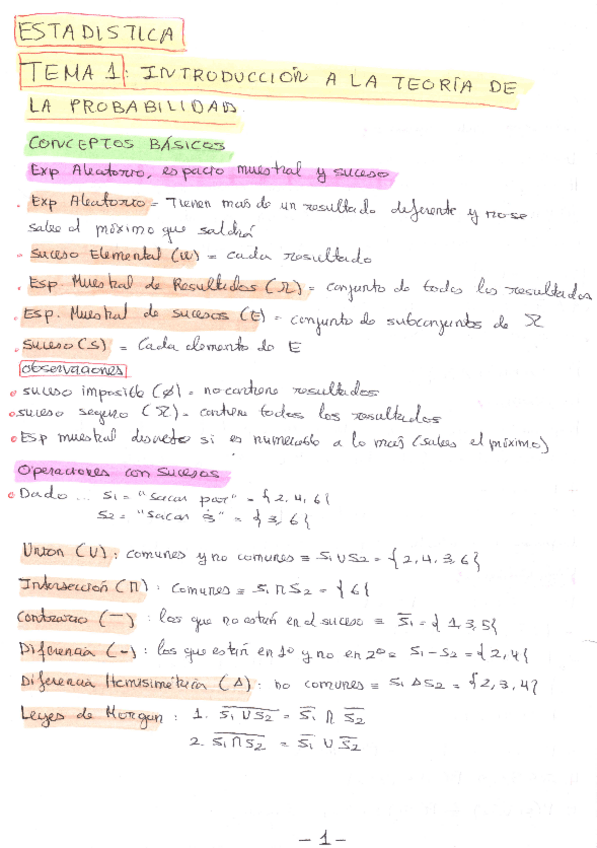 ESTADISTICA
TEMA 1: INTRODUCCIÓN A LA TEORÍA DE
LA PROBABILIDAD.
CONCEPTOS BÁSICOS
Exp Aleatorio, espacio muestral y suceso
. Exp Aleatorio = Tienen mas de un resultado diferente y no se
sabe el próximo que saldrá
. Suceso Elemental (w) = cada resultado
. Esp. Muestral de Resultados (Ω) = conjunto de todos los resultados
. Esp. Muestral de sucesos (E) = conjunto de subconjuntos de Ω
. Suceso (S) = Cada elemento de E
observaciones
o suceso imposible (∅) = no contiene resultados
o suceso seguro (Ω) = contiene todos los resultados
o Esp muestral discreto si es numerable a lo mas (sabes el próximo)
Operaciones con sucesos
o Dado ... S1 = "sacar par" = {2, 4, 6}
S2 = "sacar 3̇" = {3, 6}
Union (U) : comunes y no comunes ≡ S1 U S2 = {2, 4, 3, 6}
Intersección (∩) : comunes ≡ S1 ∩ S2 = {6}
Contrario (—) : los que no están en el suceso ≡ S̅1 = {1, 3, 5}
Diferencia (-) : los que están en 1º y no en 2º ≡ S1 - S2 = {2, 4}
Diferencia Hemisimétrica (Δ) : no comunes ≡ S1 Δ S2 = {2, 3, 4}
Leyes de Morgan : 1. \overline{S1 U S2} = \overline{S1} ∩ \overline{S2}
2. \overline{S1 ∩ S2} = \overline{S1} U \overline{S2}
- 1 -